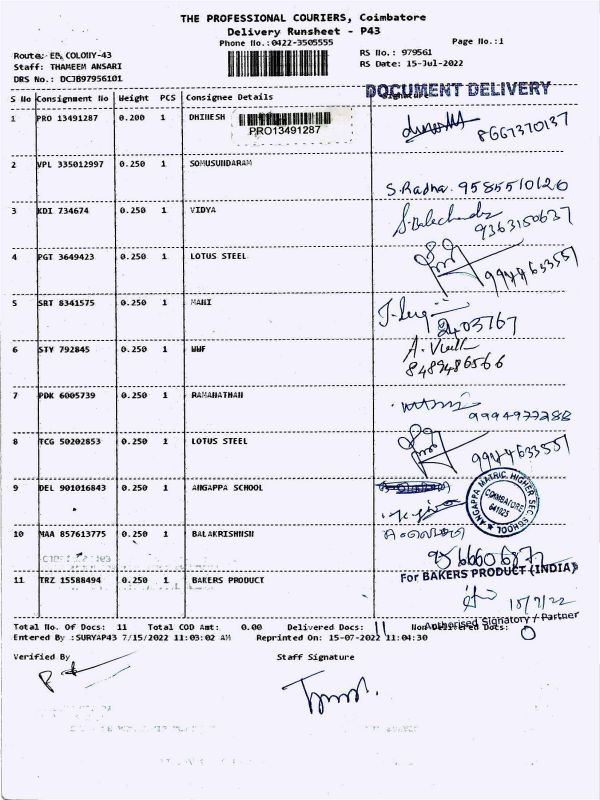 THE PROFESSIONAL COURIERS, Coimbatore
Delivery Runsheet - P43
Phone No.:0422-3505555
Page No.:1
Route: EB, COLONY-43
Staff: THAMEEM ANSARI
DRS No.: DCJB97956101
RS No.: 979561
RS Date: 15-Jul-2022
DOCUMENT DELIVERY
S No Consignment No Weight PCS Consignee Details Signature
1 PRO 13491287 0.200 1 DHINESH
PRO13491287
8667370137
2 VPL 335012997 0.250 1 SOMUSUNDARAM
S.Radha. 9585510120
3 KDI 734674 0.250 1 VIDYA
S.Balechandr
9363150637
4 PGT 3649423 0.250 1 LOTUS STEEL
9944633551
5 SRT 8341575 0.250 1 MANI
2403767
6 STY 792845 0.250 1 WWF
8489486566
7 PDK 6005739 0.250 1 RAMANATHAN
9994977288
8 TCG 50202853 0.250 1 LOTUS STEEL
9944633551
9 DEL 901016843 0.250 1 ANGAPPA SCHOOL
ANGAPPA MATRIC. HIGHER SEC. SCHOOL
COIMBATORE
641025
10 MAA 857613775 0.250 1 BALAKRISHNSH
11 TRZ 15588494 0.250 1 BAKERS PRODUCT
For BAKERS PRODUCT (INDIA)
15/7/22
Authorised Signatory / Partner
Total No. Of Docs: 11 Total COD Amt: 0.00 Delivered Docs: 11 Non Delivered Dots: 0
Entered By :SURYAP43 7/15/2022 11:03:02 AM Reprinted On: 15-07-2022 11:04:30
Verified By
Staff Signature